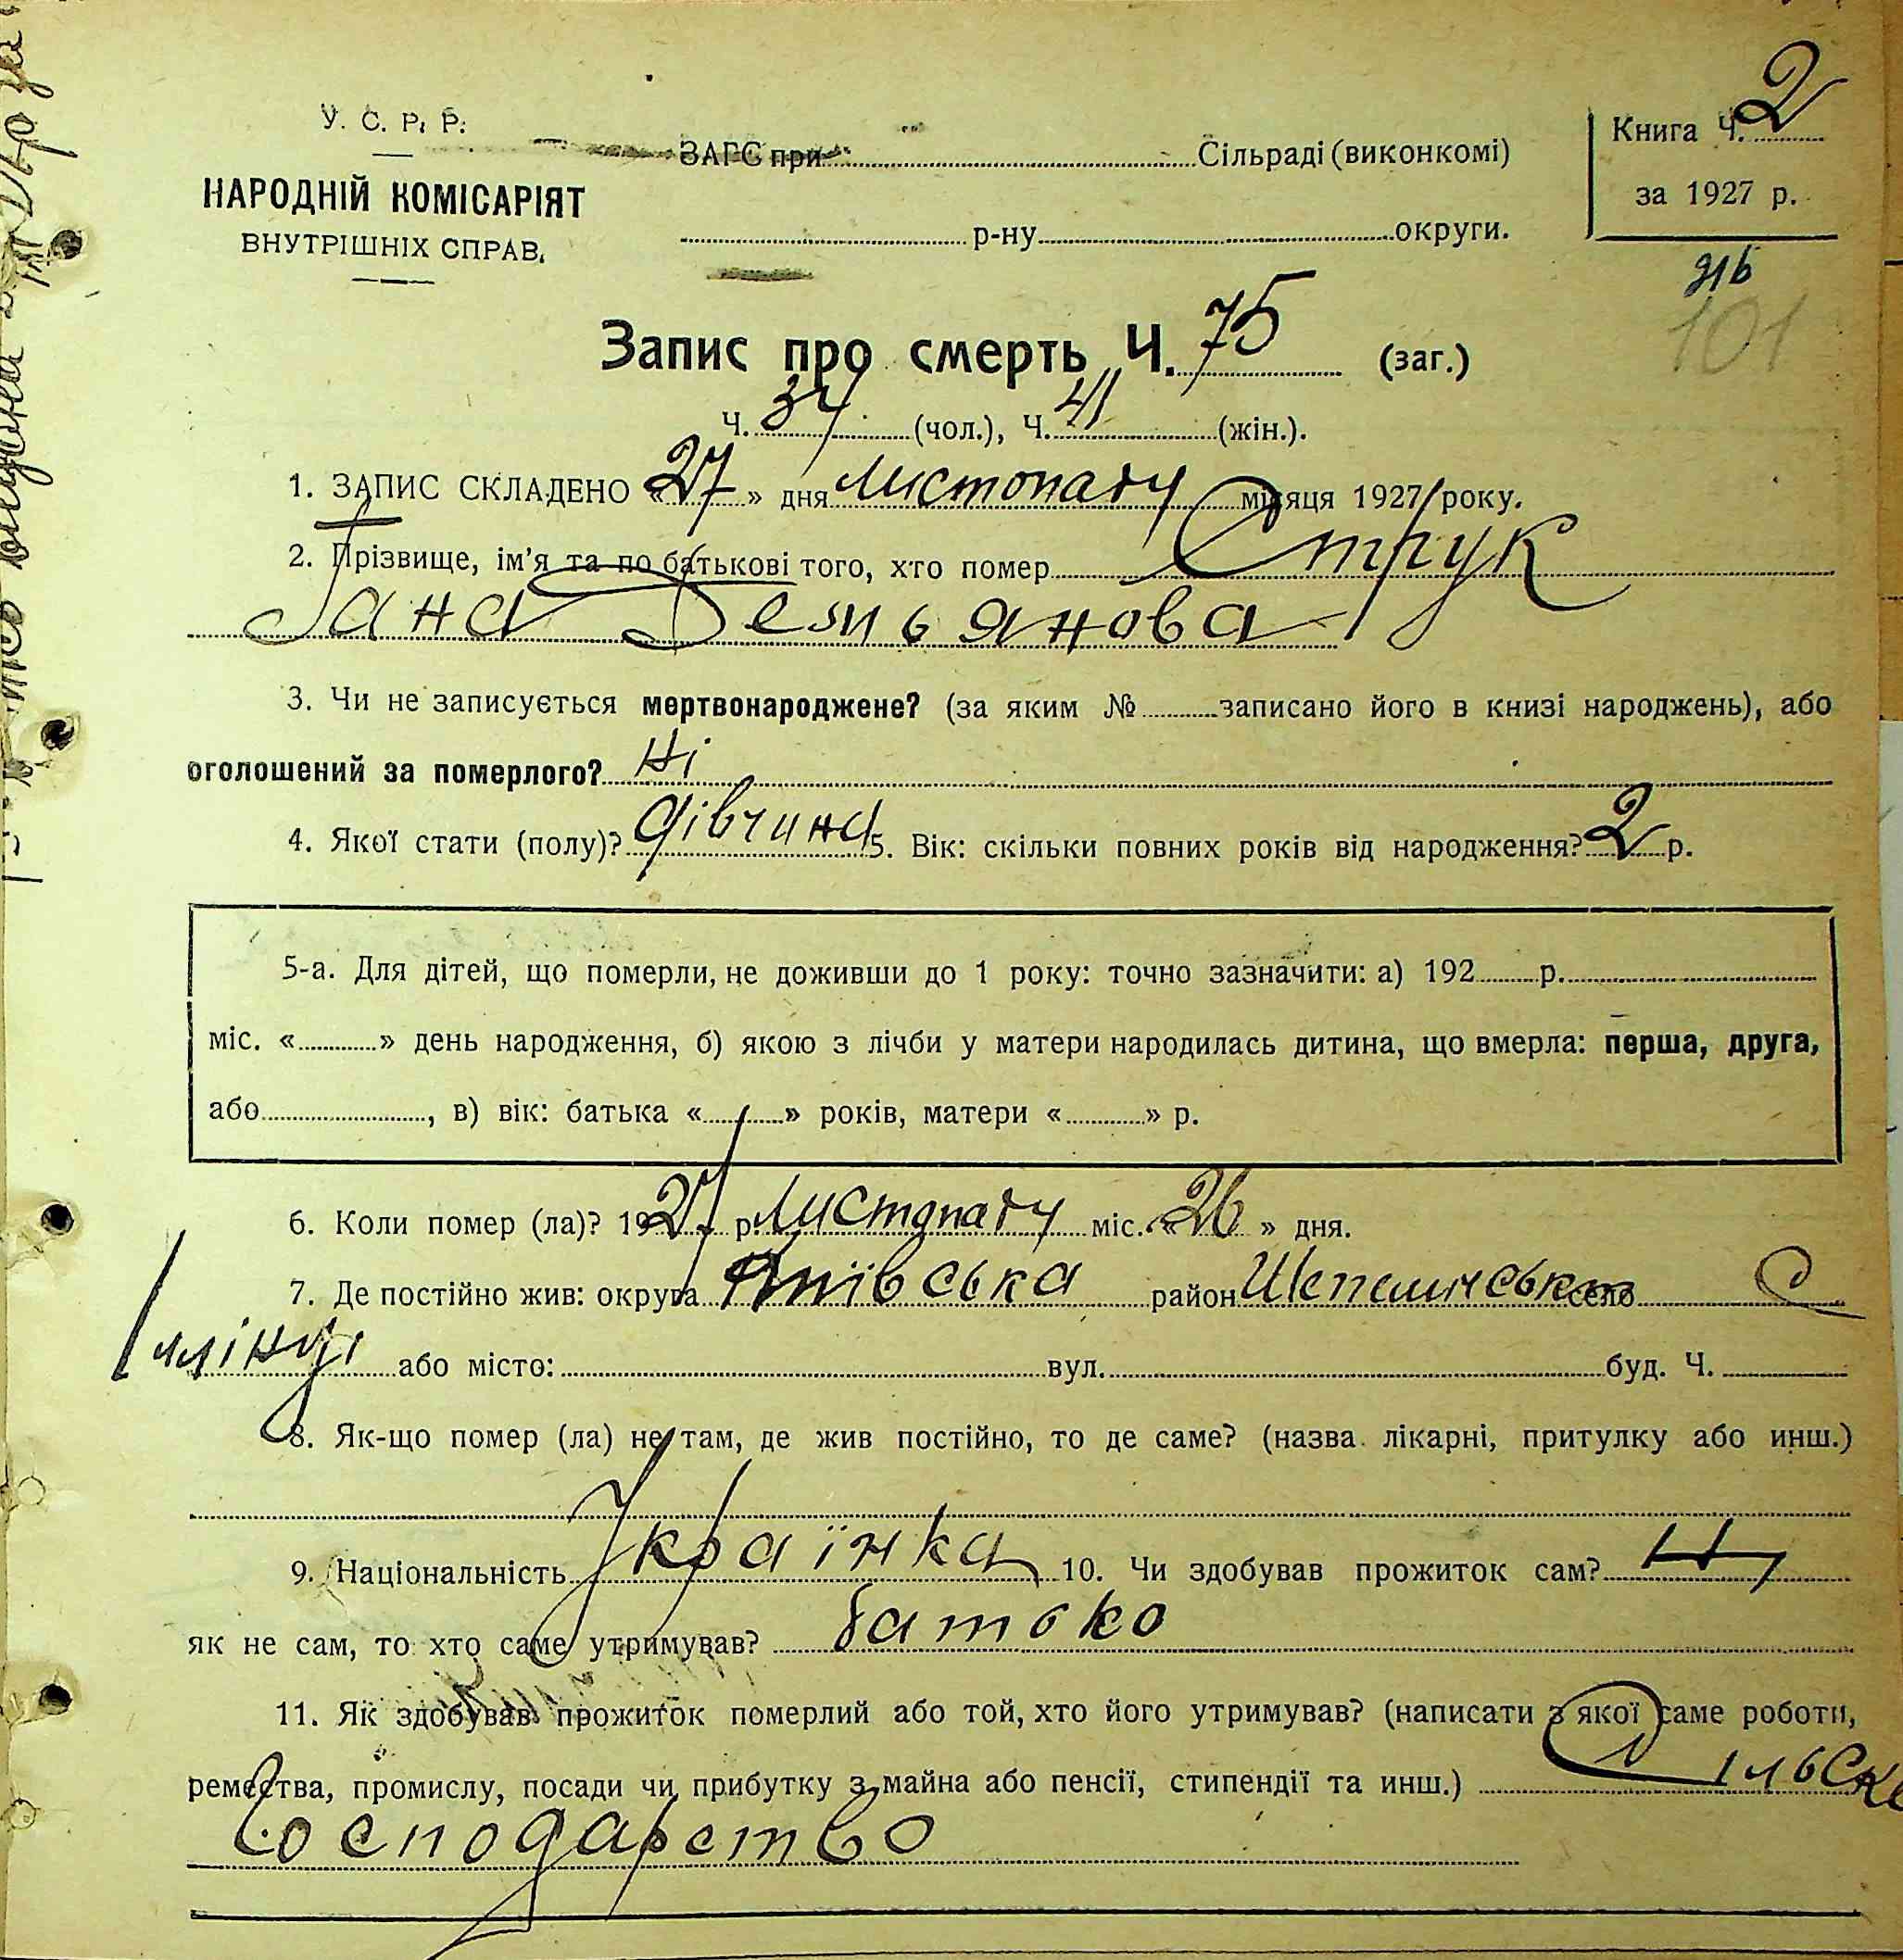 У. С. Р. Р.
ЗАГС при Сільраді (виконкомі)
Книга Ч. 2
НАРОДНІЙ КОМІСАРІЯТ
за 1927 р.
ВНУТРІШНІХ СПРАВ.
р-ну округи.
101
Запис про смерть Ч. 75 (заг.)
Ч. 34 (чол.), Ч. 41 (жін.).
1. ЗАПИС СКЛАДЕНО « 27 » дня Листопаду місяця 1927 року.
2. Прізвище, ім'я та по батькові того, хто помер Струк
Гана Демьянова
3. Чи не записується мертвонароджене? (за яким № записано його в книзі народжень), або
оголошений за померлого? Ні
4. Якої стати (полу)? дівчина 5. Вік: скільки повних років від народження? 2 р.
5-а. Для дітей, що померли, не доживши до 1 року: точно зазначити: а) 192 р.
міс. « » день народження, б) якою з лічби у матери народилась дитина, що вмерла: перша, друга,
або , в) вік: батька « » років, матери « » р.
6. Коли помер (ла)? 1927 р. Листопаду міс. « 26 » дня.
7. Де постійно жив: округа Київська район село
або місто: вул. буд. Ч.
8. Як-що помер (ла) не там, де жив постійно, то де саме? (назва лікарні, притулку або инш.)
9. Національність Українка 10. Чи здобував прожиток сам? Ні
як не сам, то хто саме утримував? батько
11. Як здобував прожиток померлий або той, хто його утримував? (написати з якої саме роботи,
ремества, промислу, посади чи прибутку з майна або пенсії, стипендії та инш.) Сільске
Господарство